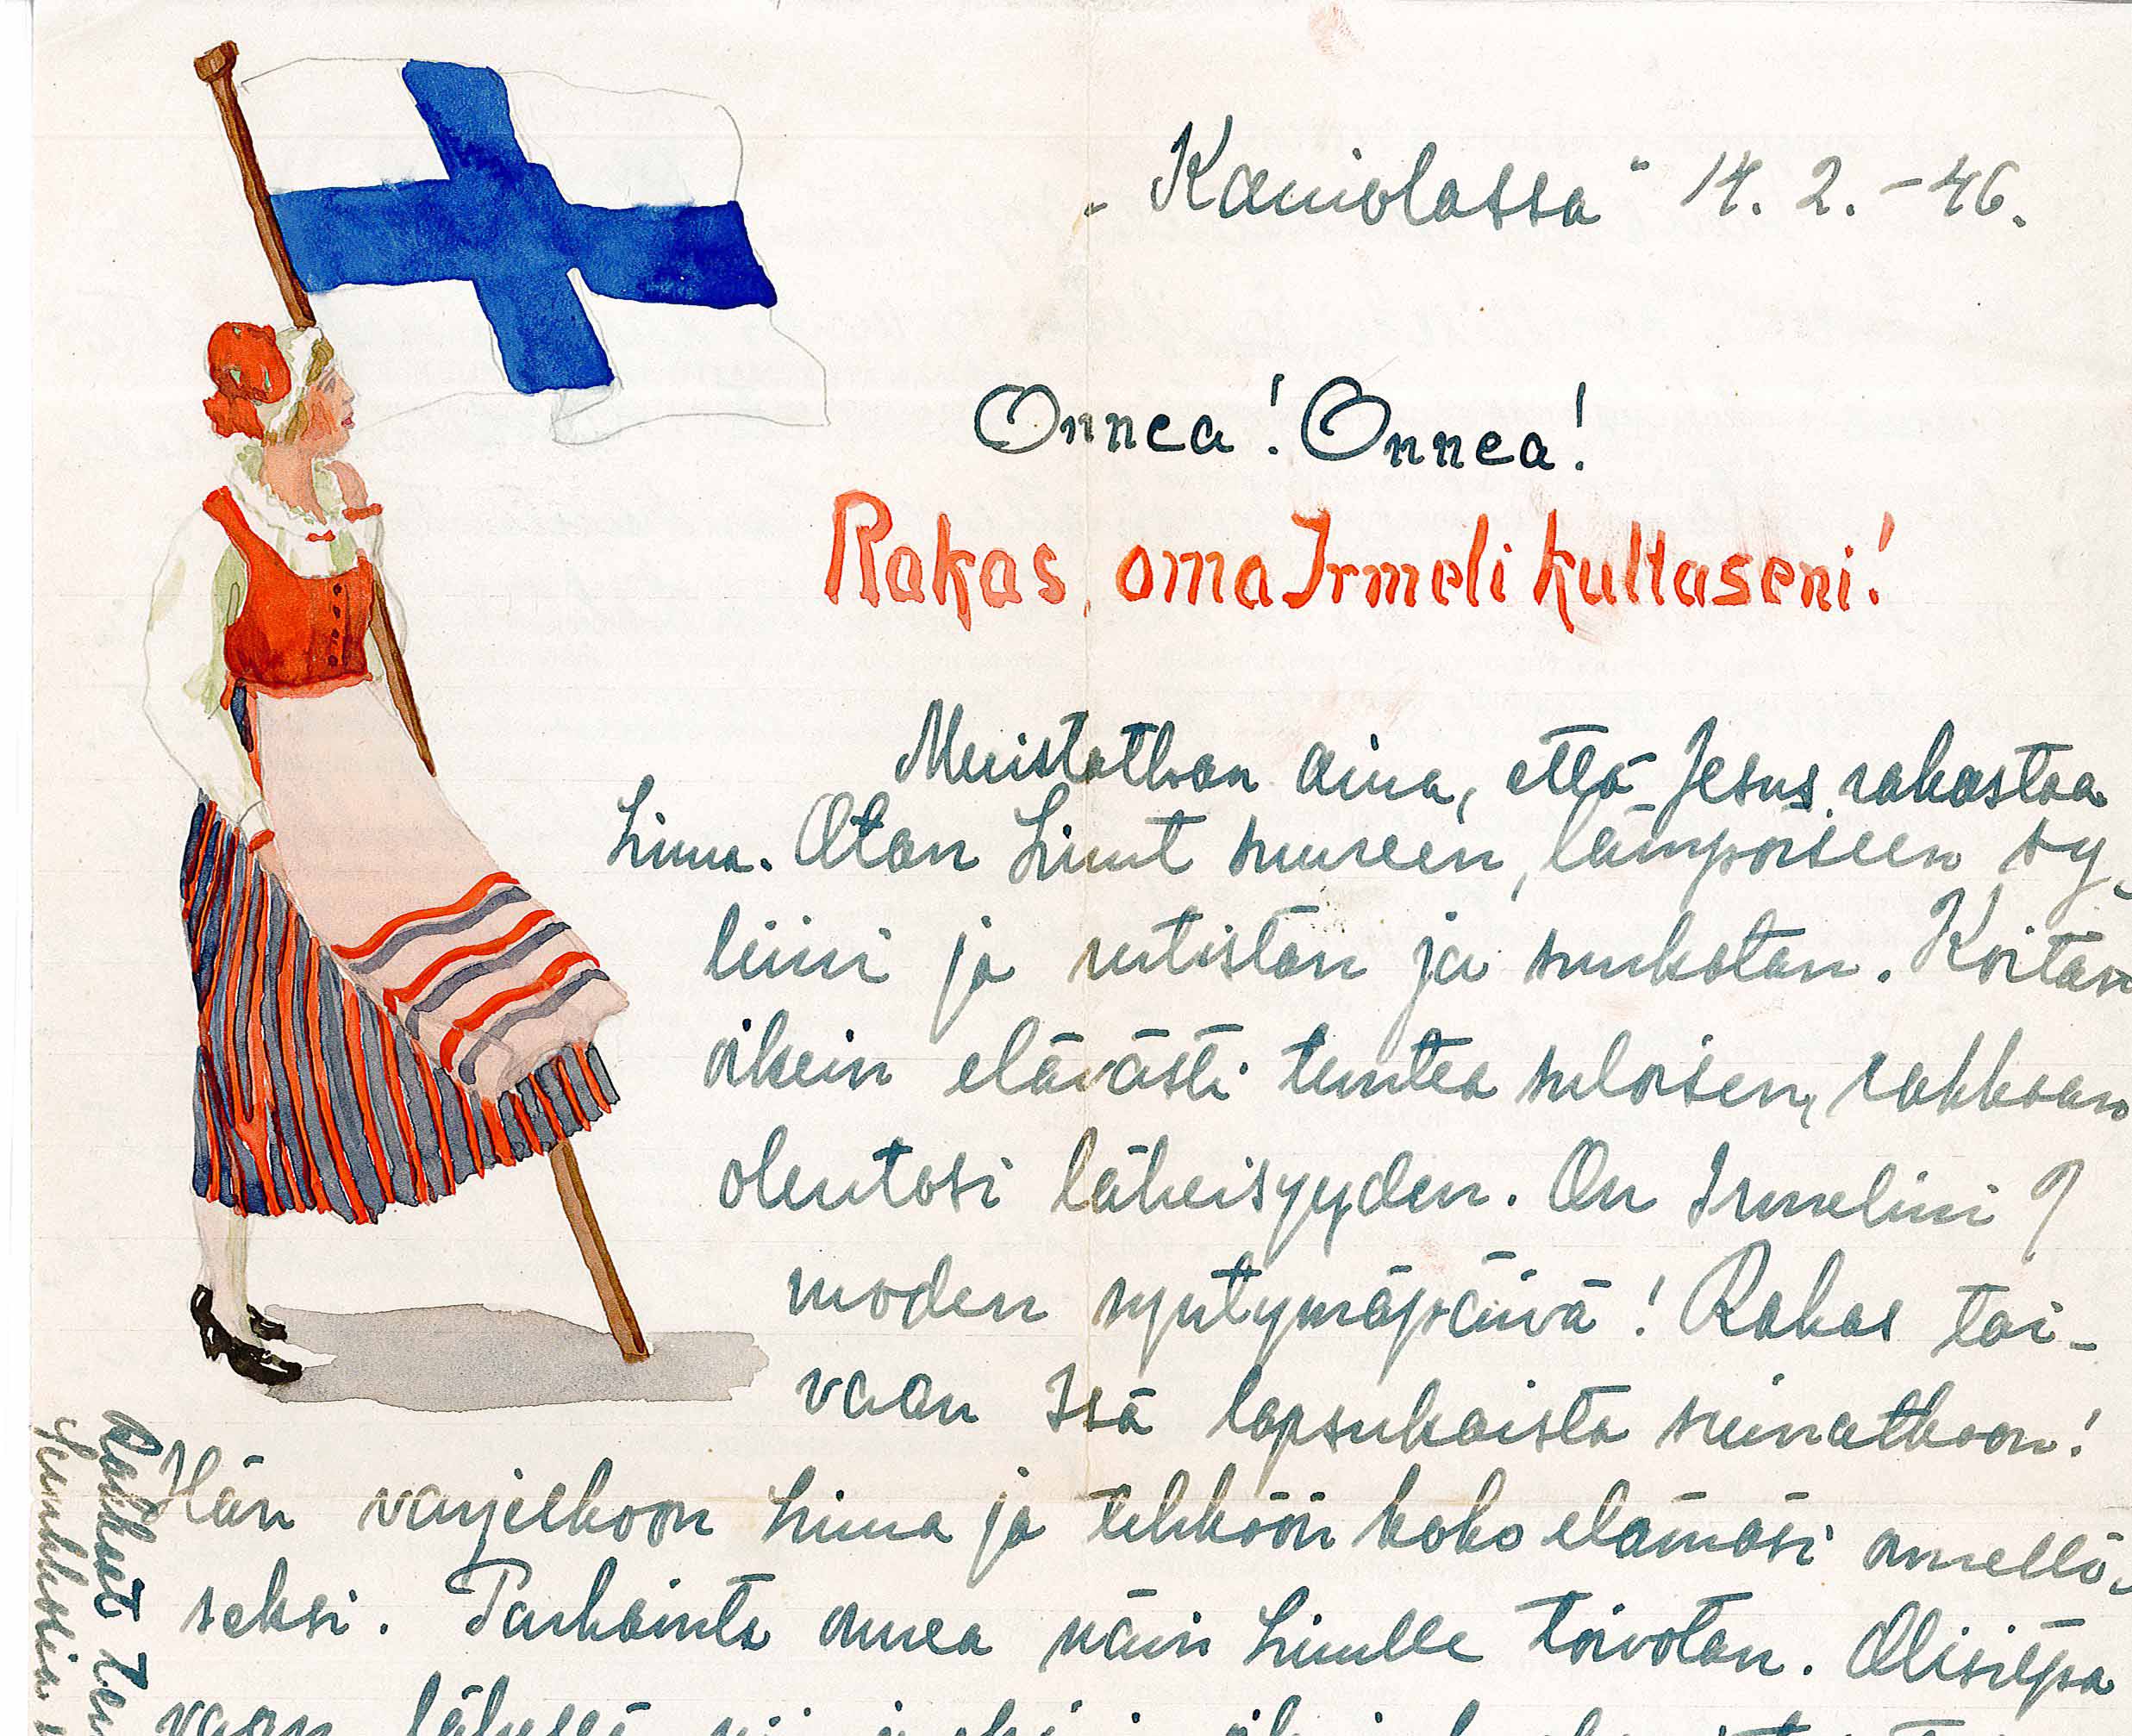 „Kauniolassa" 14. 2. -46.
Onnea! Onnea!
Rakas, oma Irmeli kultaseni!
Muistathan aina, että Jesus rakastaa
Sinua. Otan Sinut suureen, lämpöiseen sy-
liini ja rutistan ja suukotan. Koitan
oikein elävästi tuntea suloisen, rakkaan
olentosi läheisyyden. On Irmelini 9
vuoden syntymäpäivä! Rakas tai-
vaan Isä lapsukaista siunatkoon!
Hän varjelkoon Sinua ja tehköön koko elämäsi onnelli-
seksi. Parhainta onnea näin Sinulle toivotan. Olisitpa
vaan
Rakkaat